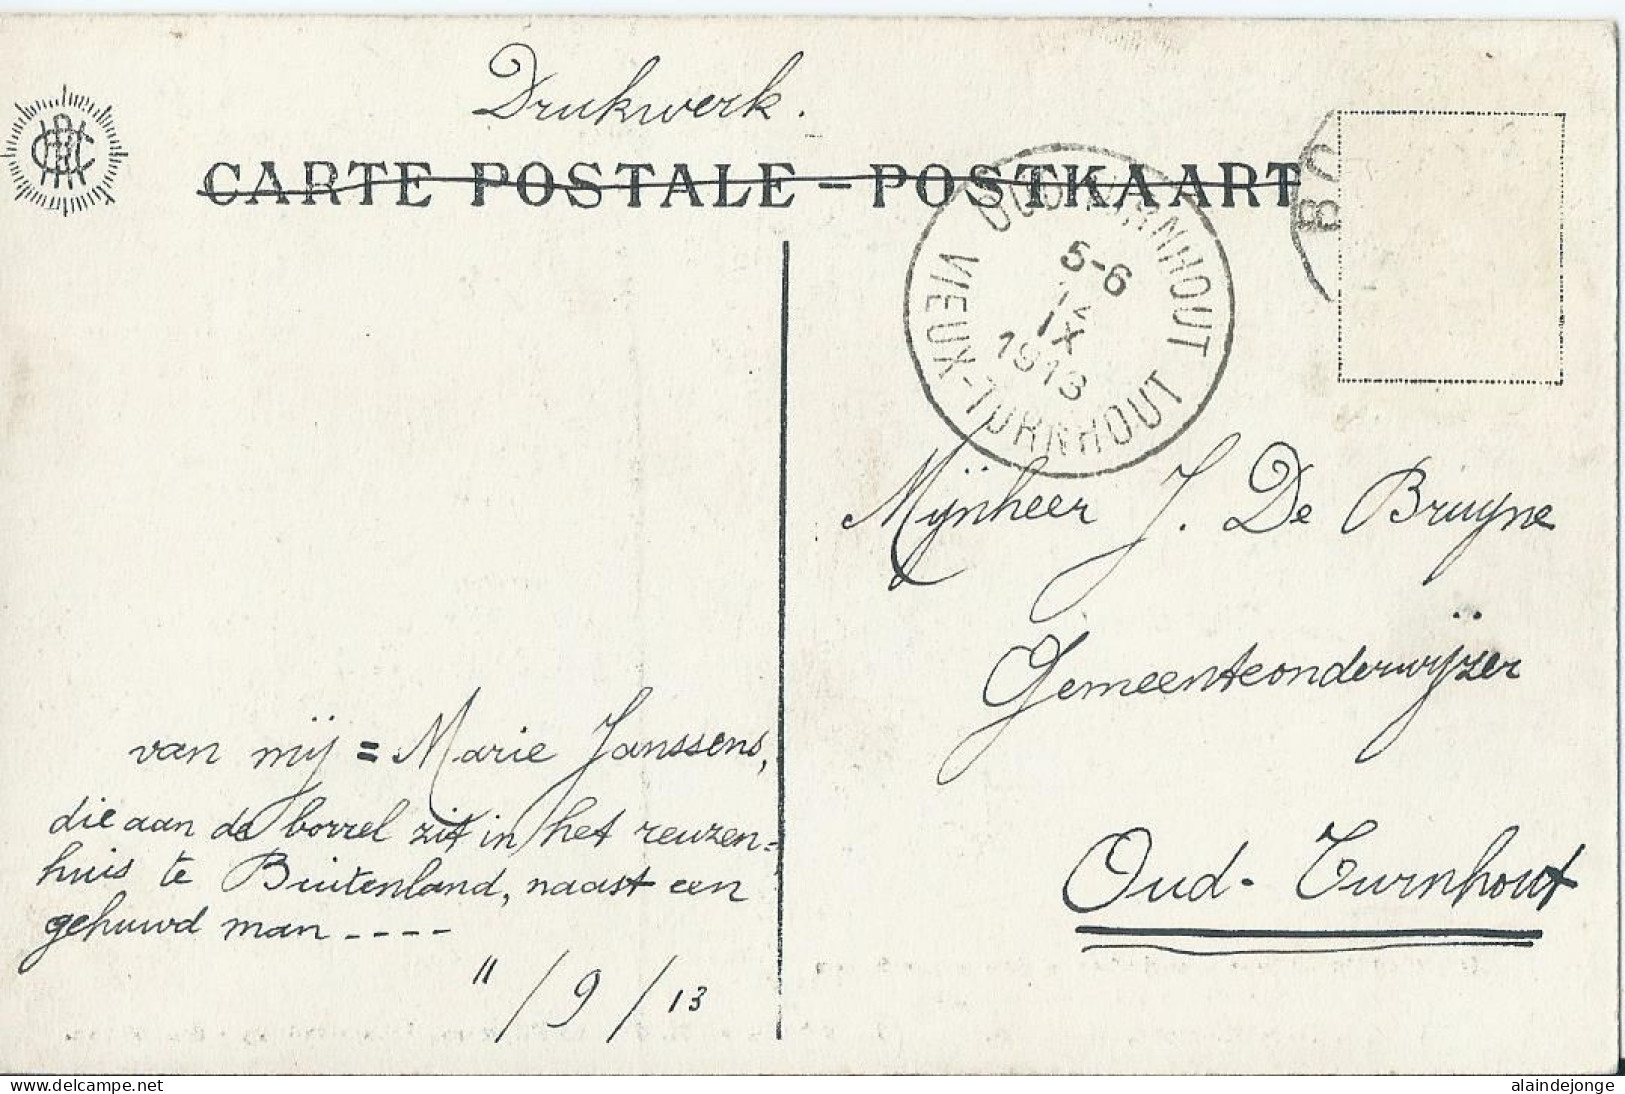 Drukwerk.
CARTE POSTALE – POSTKAART
OUD-TURNHOUT
5-6
IX
1913
VIEUX-TURNHOUT
BO
Mijnheer J. De Bruyne
Gemeenteonderwijzer
Oud-Turnhout
van mij = Marie Janssens,
die aan de borrel zit in het reuzen=
huis te Buitenland, naast een
gehuwd man ----
11/9/13
alaindejonge
This image is copyright protected. Delcampe International srl